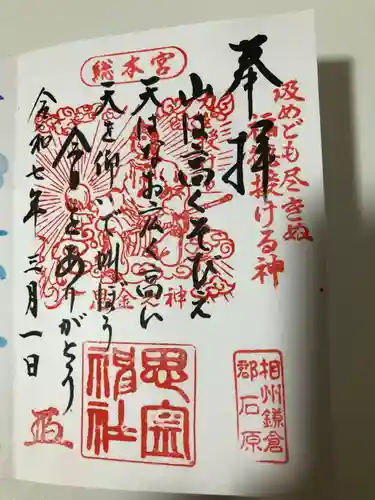 奉拝
汲めども尽きぬ
福徳授ける神
総本宮
山は高くそびえ
天はなお広く高い
天を仰いで叫ぼう
今日もありがとう
令和七年三月一日
金神
思金神社
相州鎌倉
郡石原